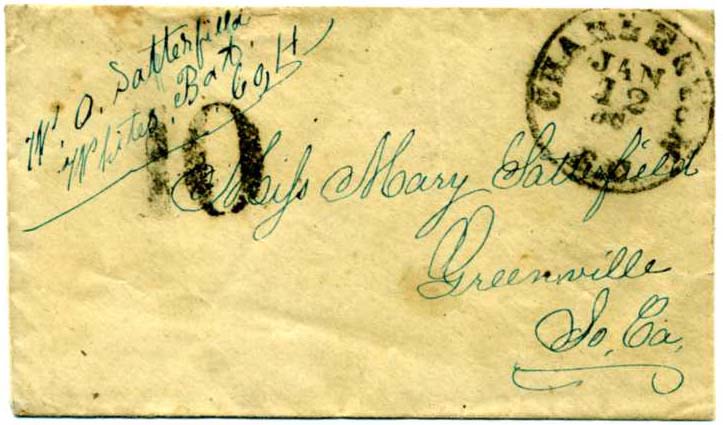 W. O. Satterfield
Whites. Bat.
Co, H
10
CHARLESTON
JAN
12
Miss Mary Satterfield
Greenville
So, Ca,